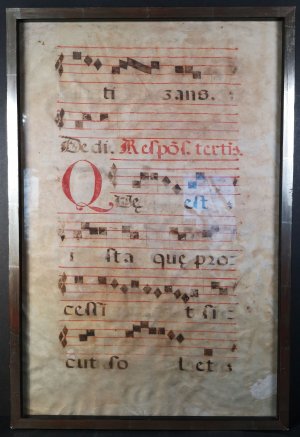 ti zans.
De di. Respōs. tertiū.
Que est
i sta que pro=
cessi t sic
cut so l et